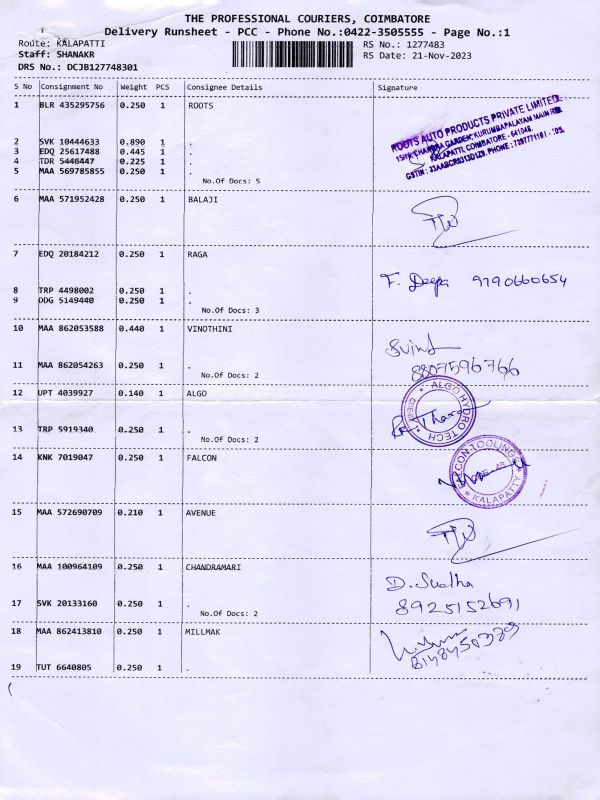 THE PROFESSIONAL COURIERS, COIMBATORE
Delivery Runsheet - PCC - Phone No.:0422-3505555 - Page No.:1
Route: KALAPATTI
Staff: SHANAKR
DRS No.: DCJB127748301
RS No.: 1277483
RS Date: 21-Nov-2023
S No Consignment No Weight PCS Consignee Details Signature
1 BLR 435295756 0.250 1 ROOTS
ROOTS AUTO PRODUCTS PRIVATE LIMITED
KALAPATTI, COIMBATORE - 641048.
2 SVK 10444633 0.890 1 .
3 EDQ 25617488 0.445 1 .
4 TDR 5446447 0.225 1 .
5 MAA 569785855 0.250 1 .
No.Of Docs: 5
6 MAA 571952428 0.250 1 BALAJI
7 EDQ 20184212 0.250 1 RAGA
F. Deepa 9790660654
8 TRP 4498002 0.250 1 .
9 ODG 5149440 0.250 1 .
No.Of Docs: 3
10 MAA 862053588 0.440 1 VINOTHINI
11 MAA 862054263 0.250 1 .
8807596766
No.Of Docs: 2
12 UPT 4039927 0.140 1 ALGO
ALGO HYDRO TECH
13 TRP 5919340 0.250 1 .
No.Of Docs: 2
14 KNK 7019047 0.250 1 FALCON
KALAPATTY
15 MAA 572690709 0.210 1 AVENUE
16 MAA 100964109 0.250 1 CHANDRAMARI
D. Sudha
17 SVK 20133160 0.250 1 .
8925152691
No.Of Docs: 2
18 MAA 862413810 0.250 1 MILLMAK
19 TUT 6640805 0.250 1 .